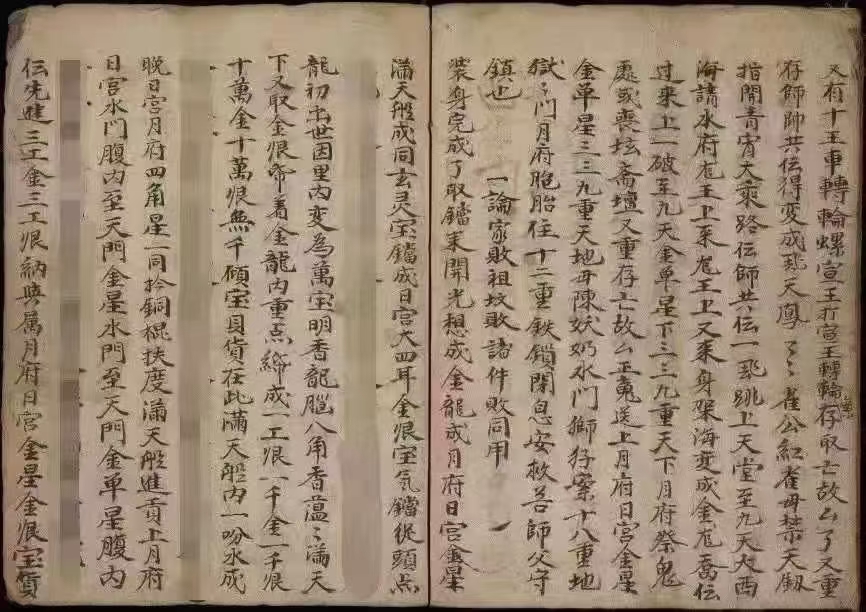 又有十五車轉輪螺宣王打宣王轉輪存取亡故厶了又重
存師師共伝得変成飛天鳳〻〻雀公紅雀母禁天
指開青宵大乘路伝師共伝一飛跳上天堂至九天大西
海請水府厐王上來厐王上又乘身架海变成金厐喬伝
过来上一破至九天金单星下三三九重天下月府祭鬼
處或喪坛斋壇又重存亡故厶正䰟送上月府日宫金星
金单星三三九重天地母陳妖奶水門獅仔案十八重地
獄〻門月府胞胎住十二重鉄鎖閉息安救苦師父守
鎮也
一論家敗祖坟敗諸件敗同用
装身完成了取鐺來開光想成金龍成月府日宫金星
满天般成同玄灵宝鐺成日宫大四耳金恨宝気鐺從頭点
龍初出世因里内变為萬宝明香龍腦八角香蕰〻满天
下又取金恨希着金龍内重点綈成一工恨一千金一千恨
十萬金十萬恨無千碩宝貝貨在此满天般内一吩永成
晚日宫月府四角星一同拎銅棍扶度满天般進貢上月府
日宫水門腹内至天門金星水門至天門金单星腹内
伝先進三工金三工恨納與厲月府日宫金星金恨宝貨